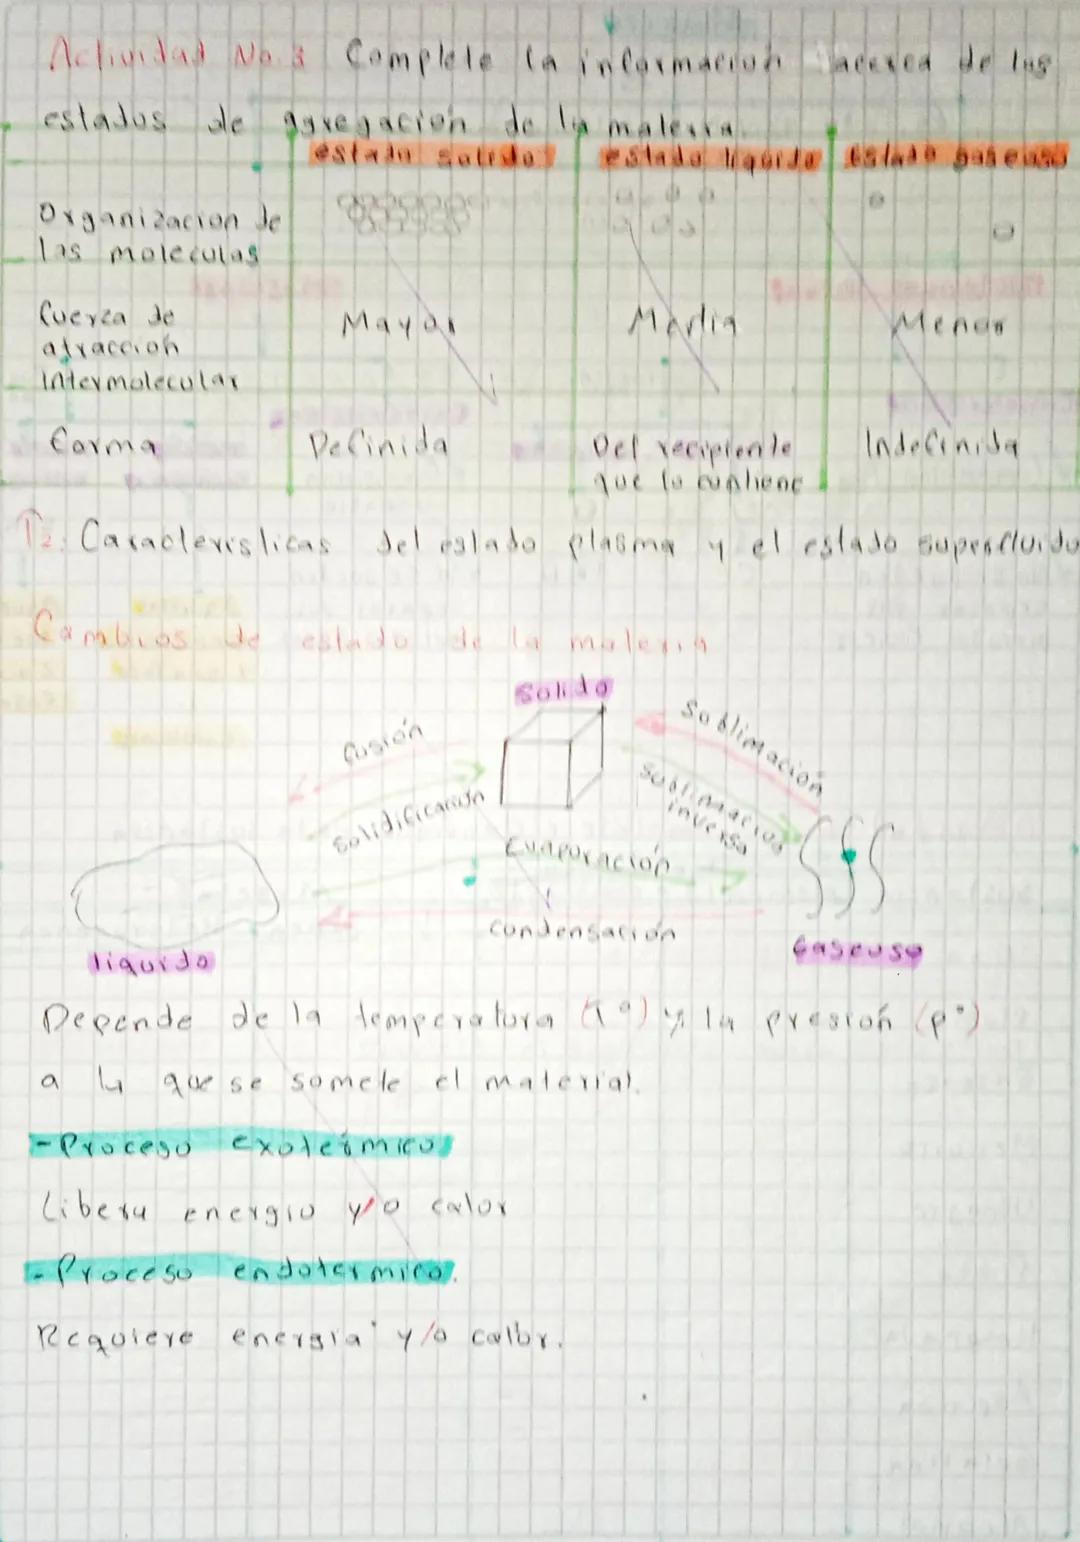 Actividad No. 3 Complete la información acerca de los
estados de agregación de la materia.
estado solido estado liquido Estado gaseoso
Organización de
las moleculas
fuerza de Mayor Media Menor
atracción
intermolecular
forma Definida Del recipiente Indefinida
que lo contiene
T2: Caracteristicas del estado plasma y el estado superfluido
Cambios de estado de la materia
Solido
fusión
Sublimación
Solidificación
Sublimacion
inversa
Evaporación
condensación
liquido
Gaseoso
Depende de la temperatura (T°) y la presión (p°)
a la que se somete el material.
-Proceso exotérmico
Libera energia y/o calor
-Proceso endotermico.
Requiere energia y/o calor.